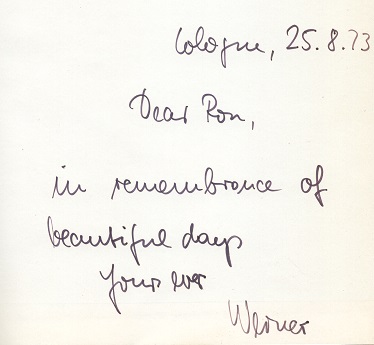 Cologne, 25.8.73
Dear Ron,
in remembrance of
beautiful days
Yours ever
Werner